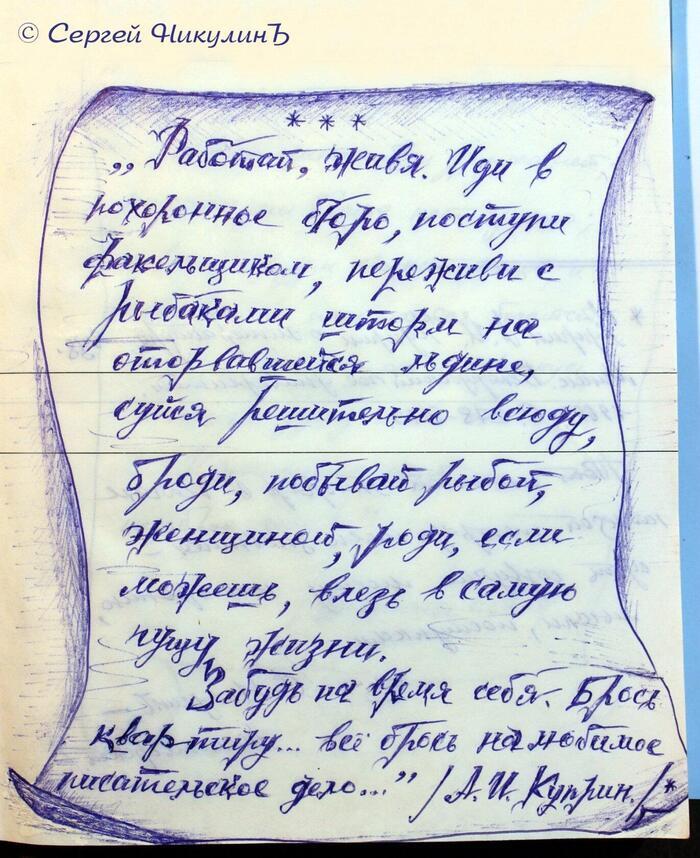 © Сергей НикулинЪ
* * *
„Работай, живя. Иди в
похоронное бюро, поступи
факельщиком, переживи с
рыбаками шторм на
оторвавшейся льдине,
суйся решительно всюду,
броди, побывай рыбой,
женщиной, роди, если
можешь, влезь в самую
гущу жизни.
Забудь на время себя. Брось
квартиру... всё брось на любимое
писательское дело..." /А.И. Куприн./*